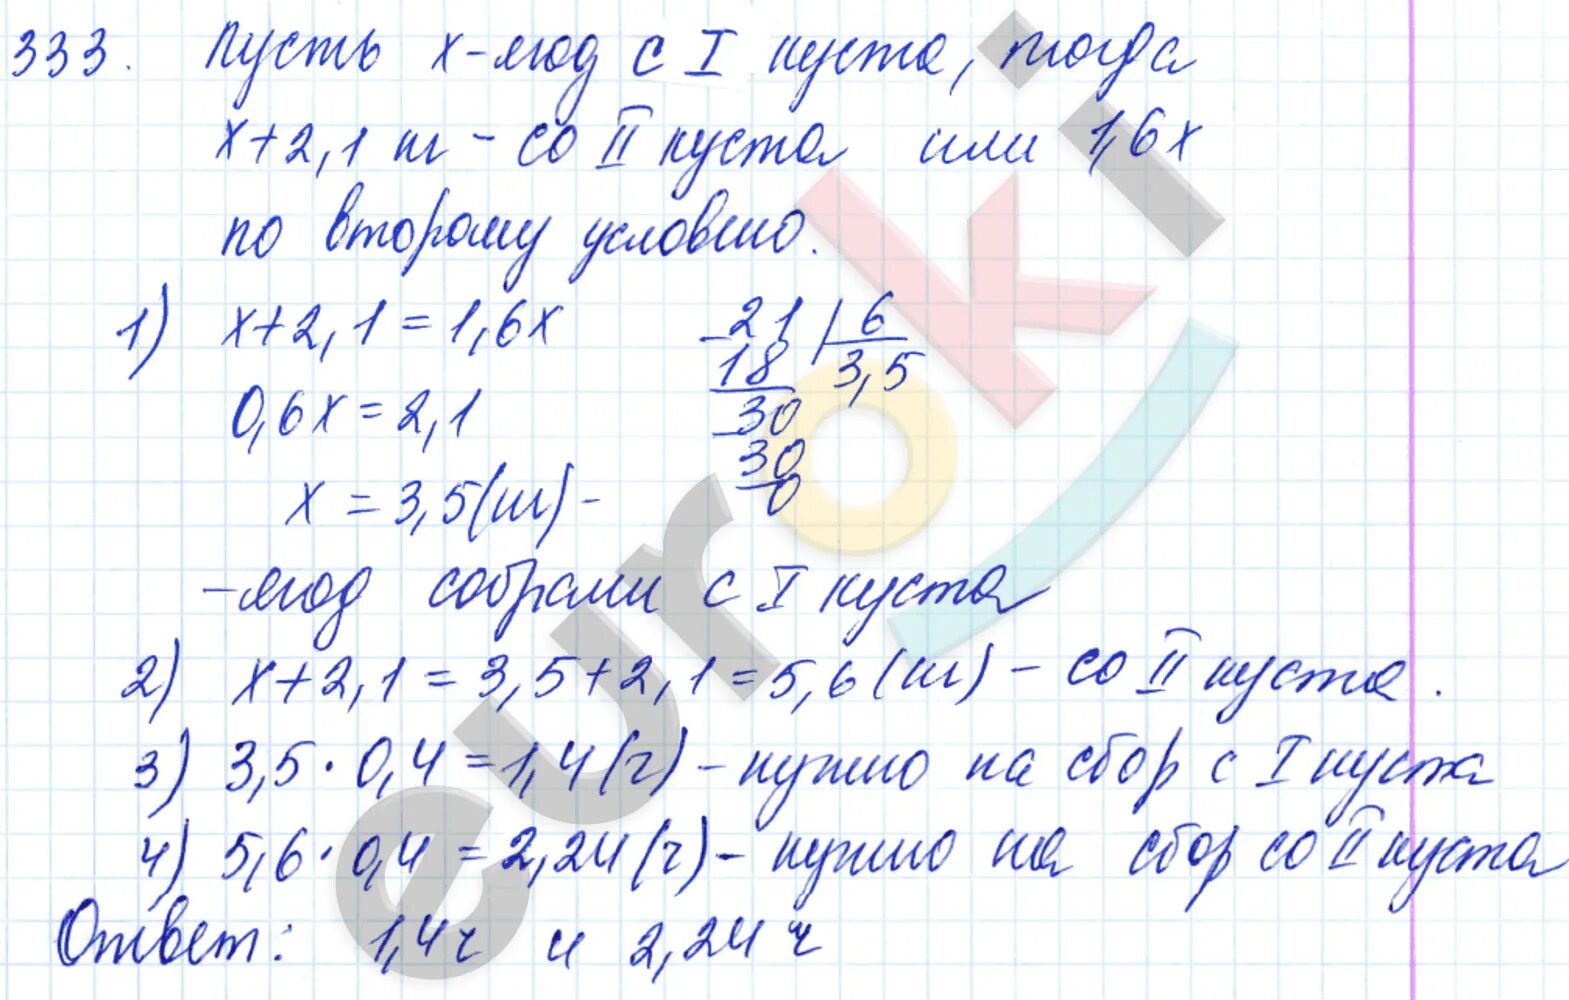 333. Пусть x-ягод с I куста, тогда
x+2,1 кг - со II куста или 1,6x
по второму условию.
1) x+2,1=1,6x
0,6x=2,1
x=3,5(кг)-
-ягод собрали с I куста
21 6
18 3,5
30
30
0
2) x+2,1=3,5+2,1=5,6(кг) - со II куста.
3) 3,5·0,4=1,4(ч) - нужно на сбор с I куста
4) 5,6·0,4=2,24(ч) - нужно на сбор со II куста
Ответ: 1,4ч и 2,24 ч
euroki